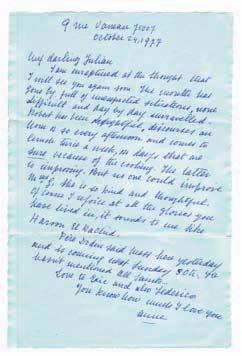 9 rue Vaneau 75007
October 24, 1977
My darling Julian
I am enraptured at the thought that
I will see you again soon. The months have
gone by full of unexpected situations, some
difficult and day by day unravelled.
has been delightful, discourses on
so every afternoon and comes to
lunch twice a week, on days that are
sure because of the cooking. The latter
is improving. But no one could improve
she is so kind and thoughtful.
Of course I rejoice at all the glories you
have lived in, it sounds to me like
Haroun El Rachid.
Père said mass here yesterday
and is coming next Sunday 30th. He
hasn't mentioned All Saints.
Love to Eric and also Federico
You know how much I love you
Anne